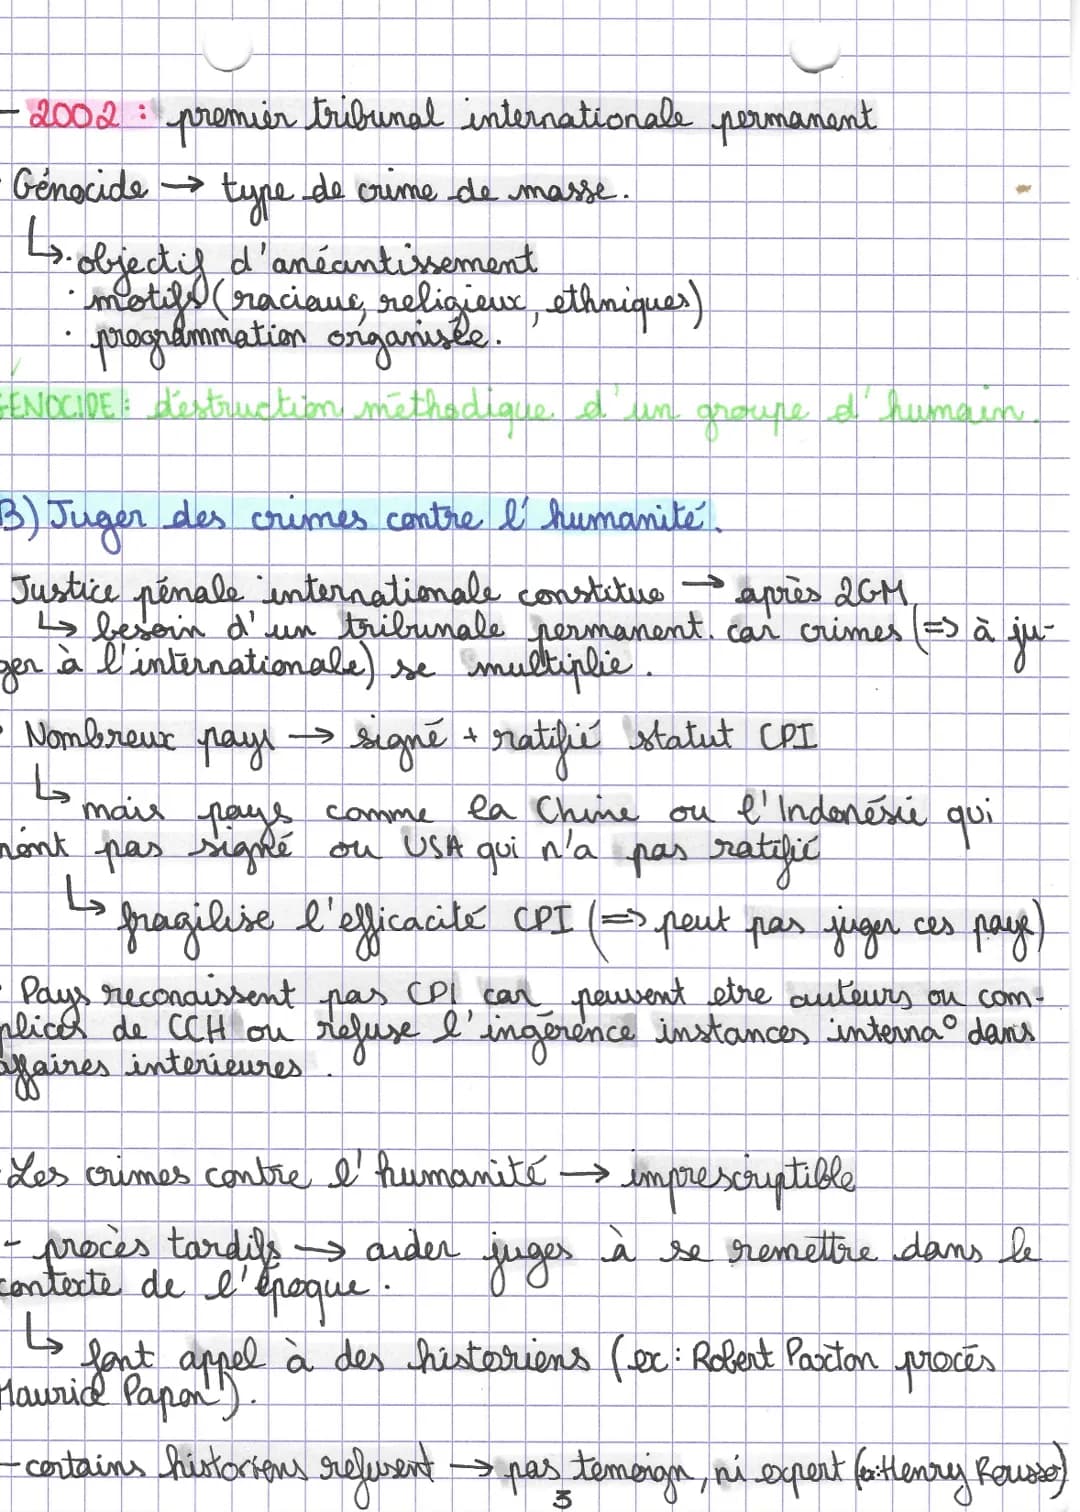 - 2002 : premier tribunal internationale permanent
Génocide → type de crime de masse.
↳ . objectif d'anéantissement
. motifs (raciaux, religieux, ethniques)
. programmation organisée.
GÉNOCIDE : destruction méthodique d'un groupe d'humain.
B) Juger des crimes contre l'humanité.
Justice pénale internationale constitue → après 2GM
↳ besoin d'un tribunale permanent. car crimes (=> à ju-
ger à l'internationale) se multiplie.
- Nombreux pays → signé + ratifié statut CPI
↳ mais pays comme la Chine ou l'Indonésie qui
n'ont pas signé ou USA qui n'a pas ratifié
↳ fragilise l'efficacité CPI (=> peut pas juger ces pays)
- Pays reconaissent pas CPI car peuvent etre auteurs ou com-
plices de CCH ou refuse l'ingérence instances interna° dans
affaires interieures.
- Les crimes contre l'humanité → imprescriptible
- procès tardifs → aider juges à se remettre dans le
contexte de l'époque.
↳ font appel à des historiens (ex : Robert Paxton procès
Maurice Papon).
- certains historiens refusent → pas temoign, ni expert (ex: Henry Rousso)
3